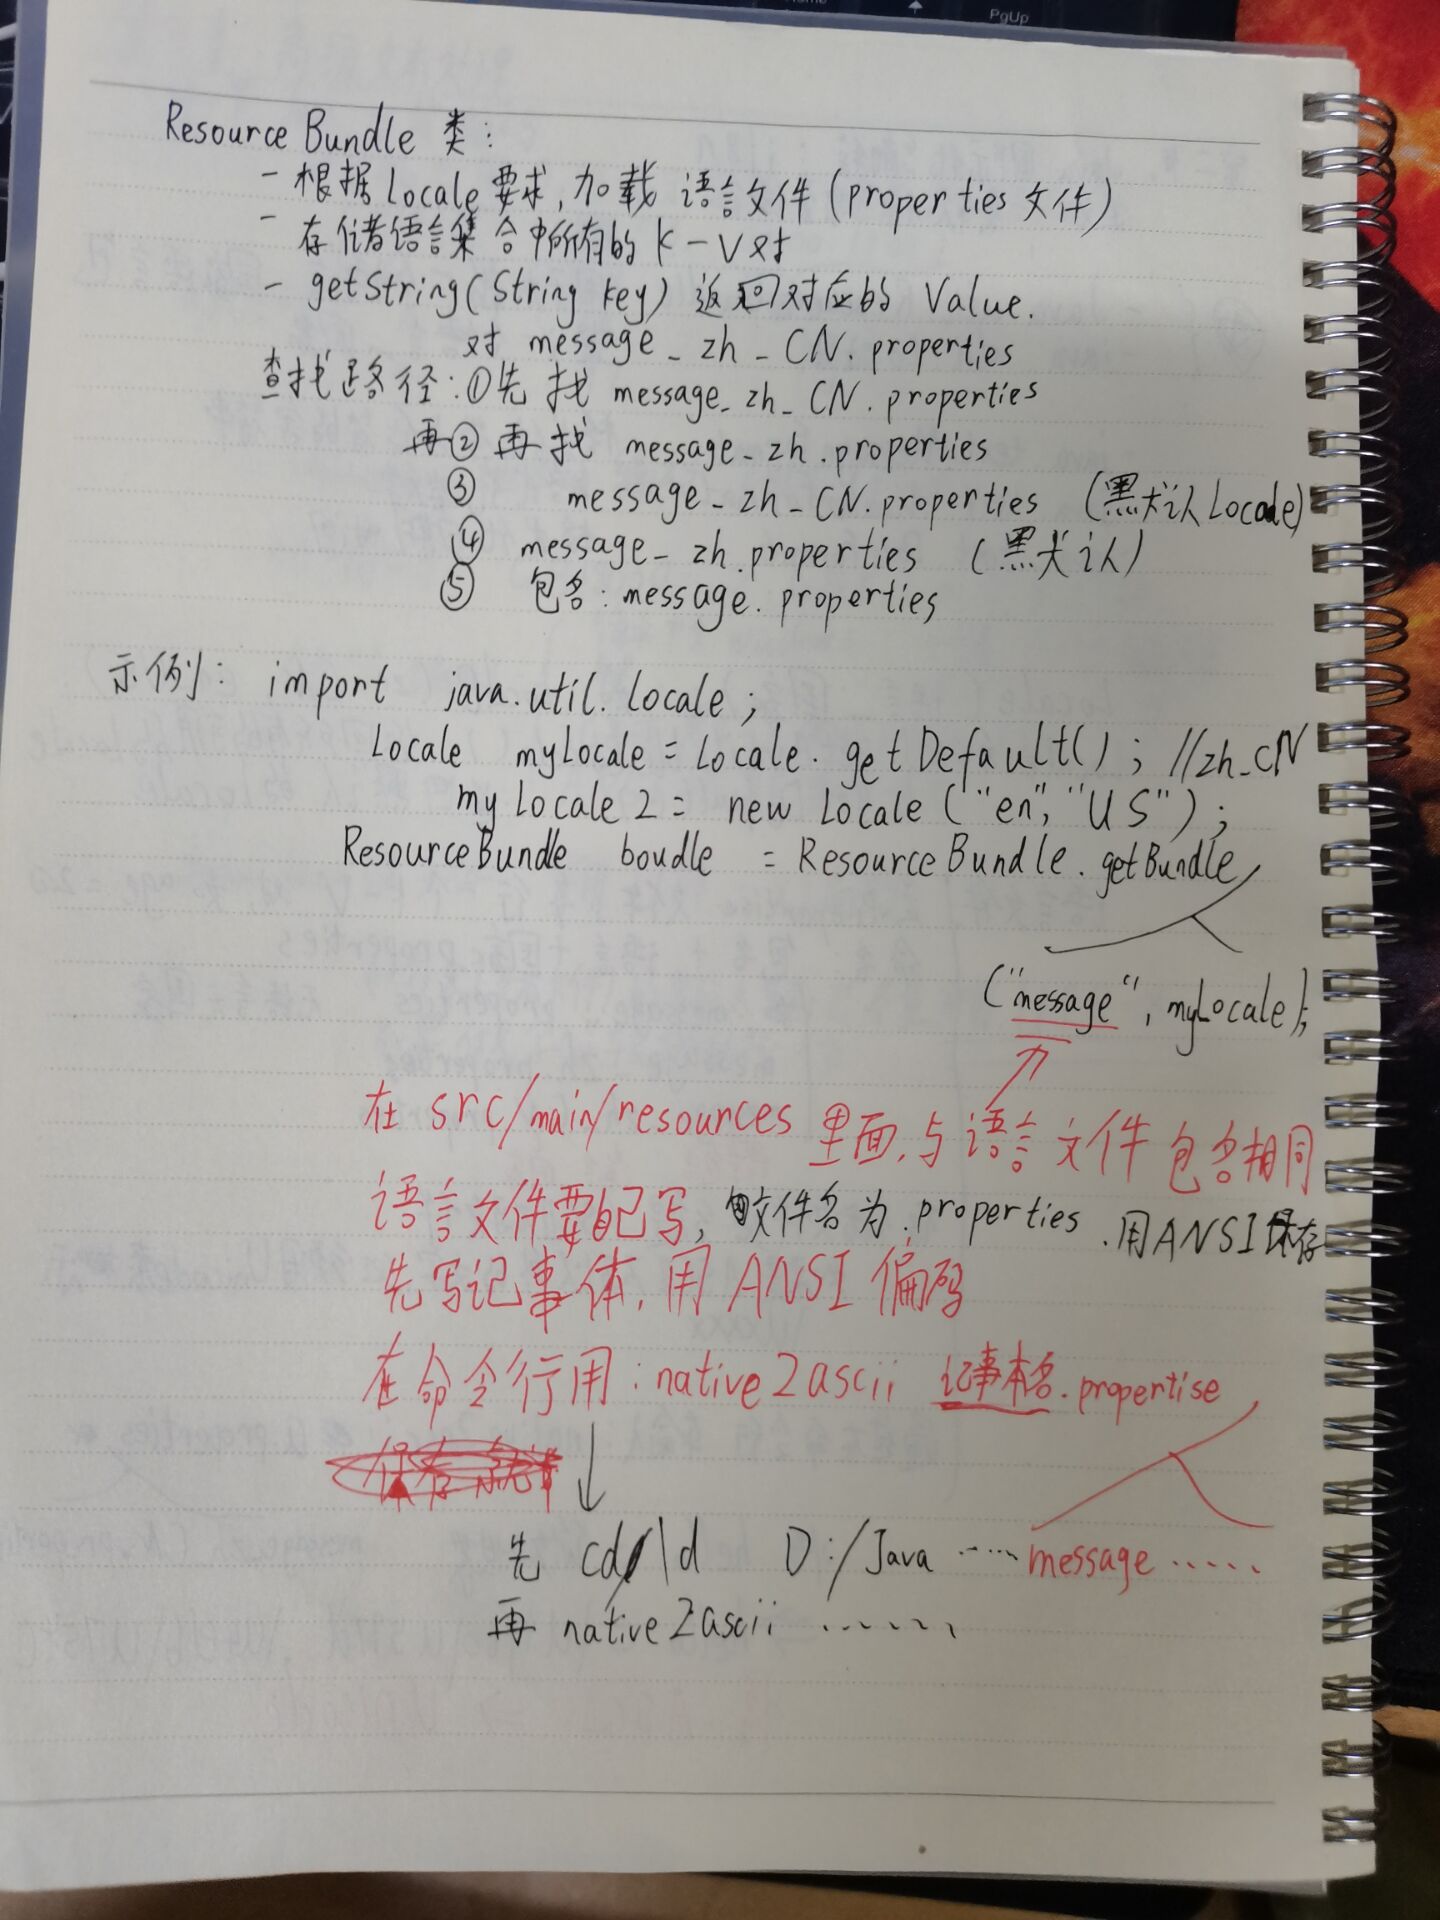 PgUp
Resource Bundle 类：
- 根据 Locale 要求，加载 语言文件（properties 文件）
- 存储语言集合中所有的 K-V对
- getString(String key) 返回对应的 Value.
对 message_zh_CN.properties
查找路径：①先找 message_zh_CN.properties
再② 再找 message_zh.properties
③ message_zh_CN.properties （默认 Locale）
④ message_zh.properties （默认）
⑤ 包名：message.properties
示例： import java.util.Locale;
Locale myLocale = Locale.getDefault(); //zh_CN
myLocale2 = new Locale("en","US");
ResourceBundle boudle = ResourceBundle.getBundle
("message", myLocale);
在 src/main/resources 里面，与语言文件包名相同
语言文件要自己写，文件名为.properties.用ANSI保存
先写记事体，用 ANSI 偏码
在命令行用：native2ascii 记事本名.propertise
先 cd \d D:/Java ······ message ······
再 native2ascii ·······